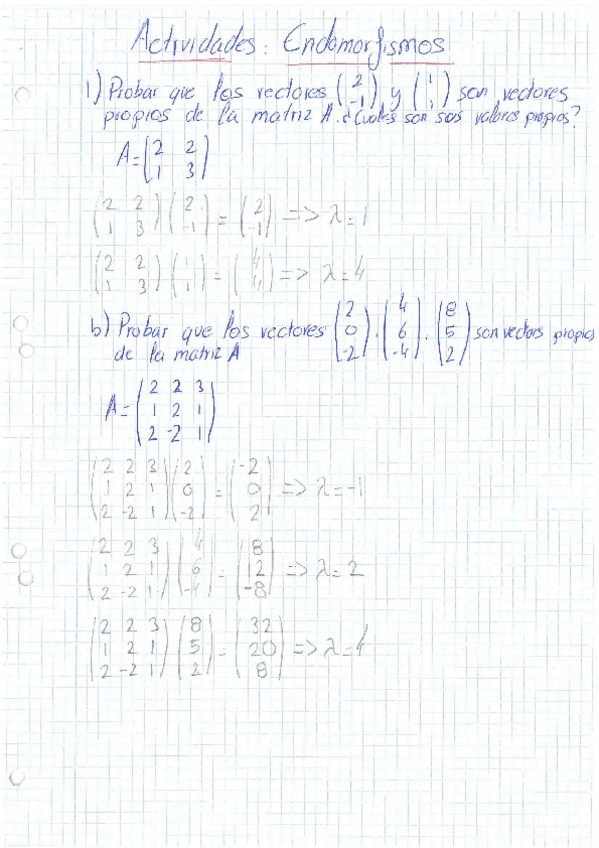 Actividades: Endomorfismos
1) Probar que los vectores (2 -1) y (1 1) son vectores
propios de la matriz A. ¿Cuáles son sus valores propios?
A = (2 2
1 3)
(2 2
1 3) (2 -1) = (2 -1) => λ=1
(2 2
1 3) (1 1) = (4 4) => λ=4
b) Probar que los vectores (2 0 -2), (4 6 -4), (8 5 2) son vectors propios
de la matriz A
A = (2 2 3
1 2 1
2 -2 1)
(2 2 3
1 2 1
2 -2 1) (2 0 -2) = (-2 0 2) => λ=-1
(2 2 3
1 2 1
2 -2 1) (4 6 -4) = (8 12 -8) => λ=2
(2 2 3
1 2 1
2 -2 1) (8 5 2) = (32 20 8) => λ=4